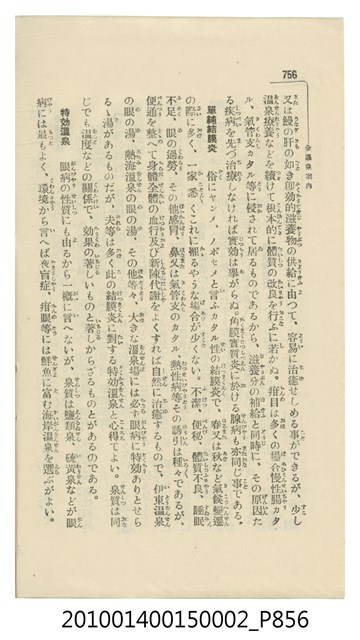 756
全温泉案内
又は鰻の肝の如き即効的滋養物の供給に由つて、容易に治癒せしめる事ができるが、少し
温泉療養などを続けて根本的に体質の改良を行ふに若かぬ。疳目は多くの場合慢性腸カタ
ル、気管支カタル等に侵されて居るものであるから、滋養分の補給と同時に、その原因た
る疾病を先づ治療しなければ実効は挙がらぬ。角膜実質炎に於ける腺病も亦同じ事である。
單純結膜炎 俗にヤンメ、ノボセメと言ふカタル性の結膜炎で、春又は秋など気候變遷
の際に多く、一家悉くこれに罹るやうな場合が少くない。不潔、便秘、體質不良、睡眠
不足、眼の過勞、その他感冒、鼻又は気管支のカタル、熱性病等その誘りは種々であるが、
便通を整へて身體全體の血行及び新陳代謝をよくすれば自然に治癒するもので、伊東温泉
の眼の湯、熱海温泉の眼の湯、その他等々、大きな温泉場には必ず眼病に特効ありとせら
るゝ湯があるものだが、夫等は多く此の結膜炎に對する特効温泉と心得てよい。泉質は同
じでも温度などの關係で、効果の著しいものと著しからざるものとがあるのである。
特効温泉 眼病の性質にも由るから一概に言へないが、泉質は鹽類泉、硫黄泉などが眼
病には最もよく、環境から言へば夜盲症、疳眼等には鮮魚に富む海岸温泉を選ぶがよい。
201001400150002_P856